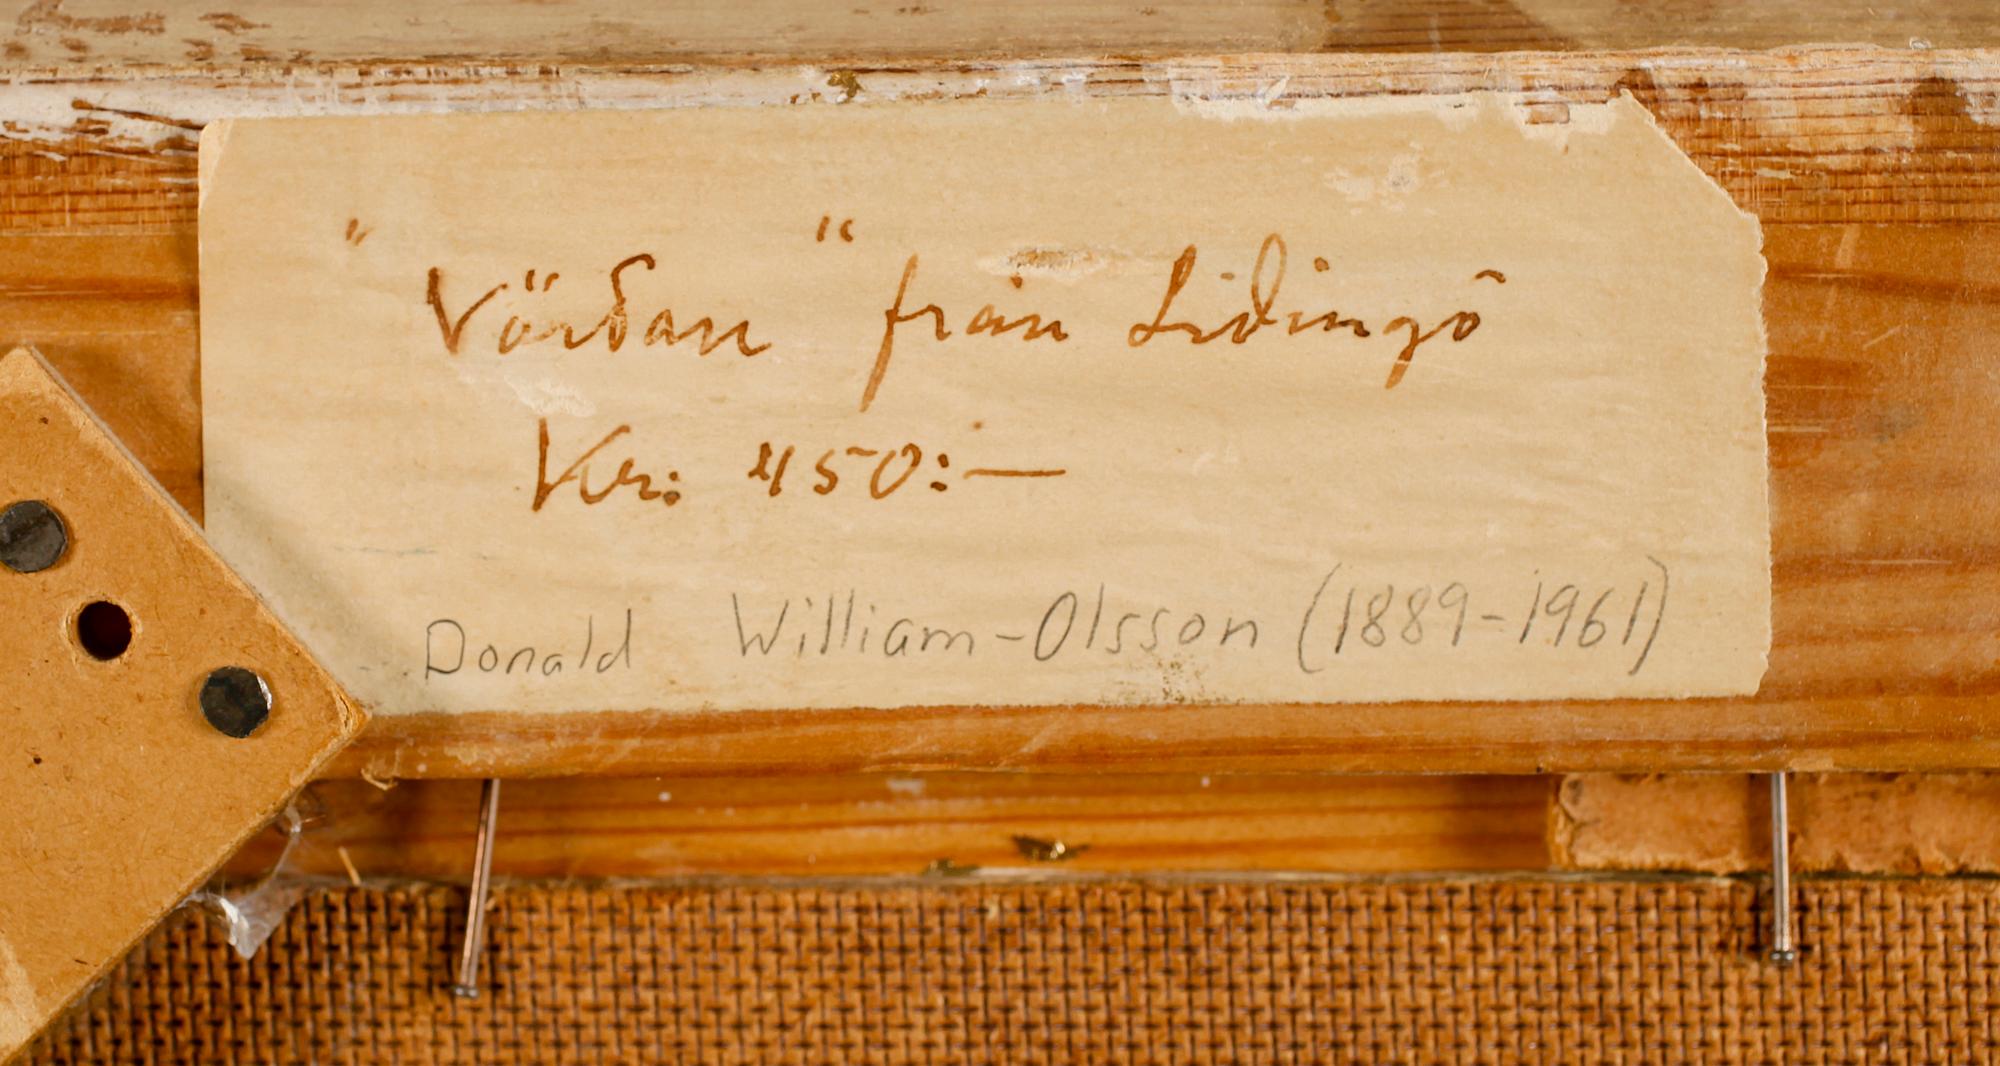 "Värdan" från Lidingö
Kr: 450:—
Donald William-Olsson (1889-1961)